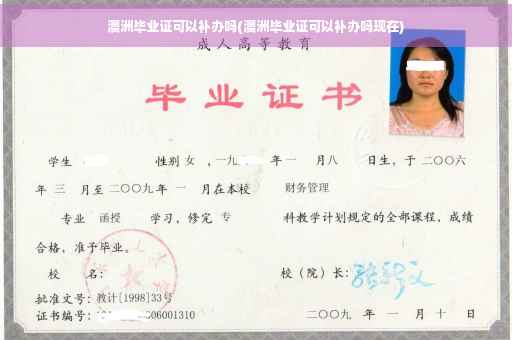 澳洲毕业证可以补办吗(澳洲毕业证可以补办吗现在)
成人高等教育
毕业证书
学生 性别 女 ，一九 年一 月八 日生，于二〇〇六
年 三 月至二〇〇九年 一 月在本校 财务管理
专业 函授 学习，修完 专 科教学计划规定的全部课程，成绩
合格，准予毕业。
校 名： 校（院）长：
批准文号：教计[1998]33号
证书编号： 06001310 二〇〇九 年 一 月 十 日